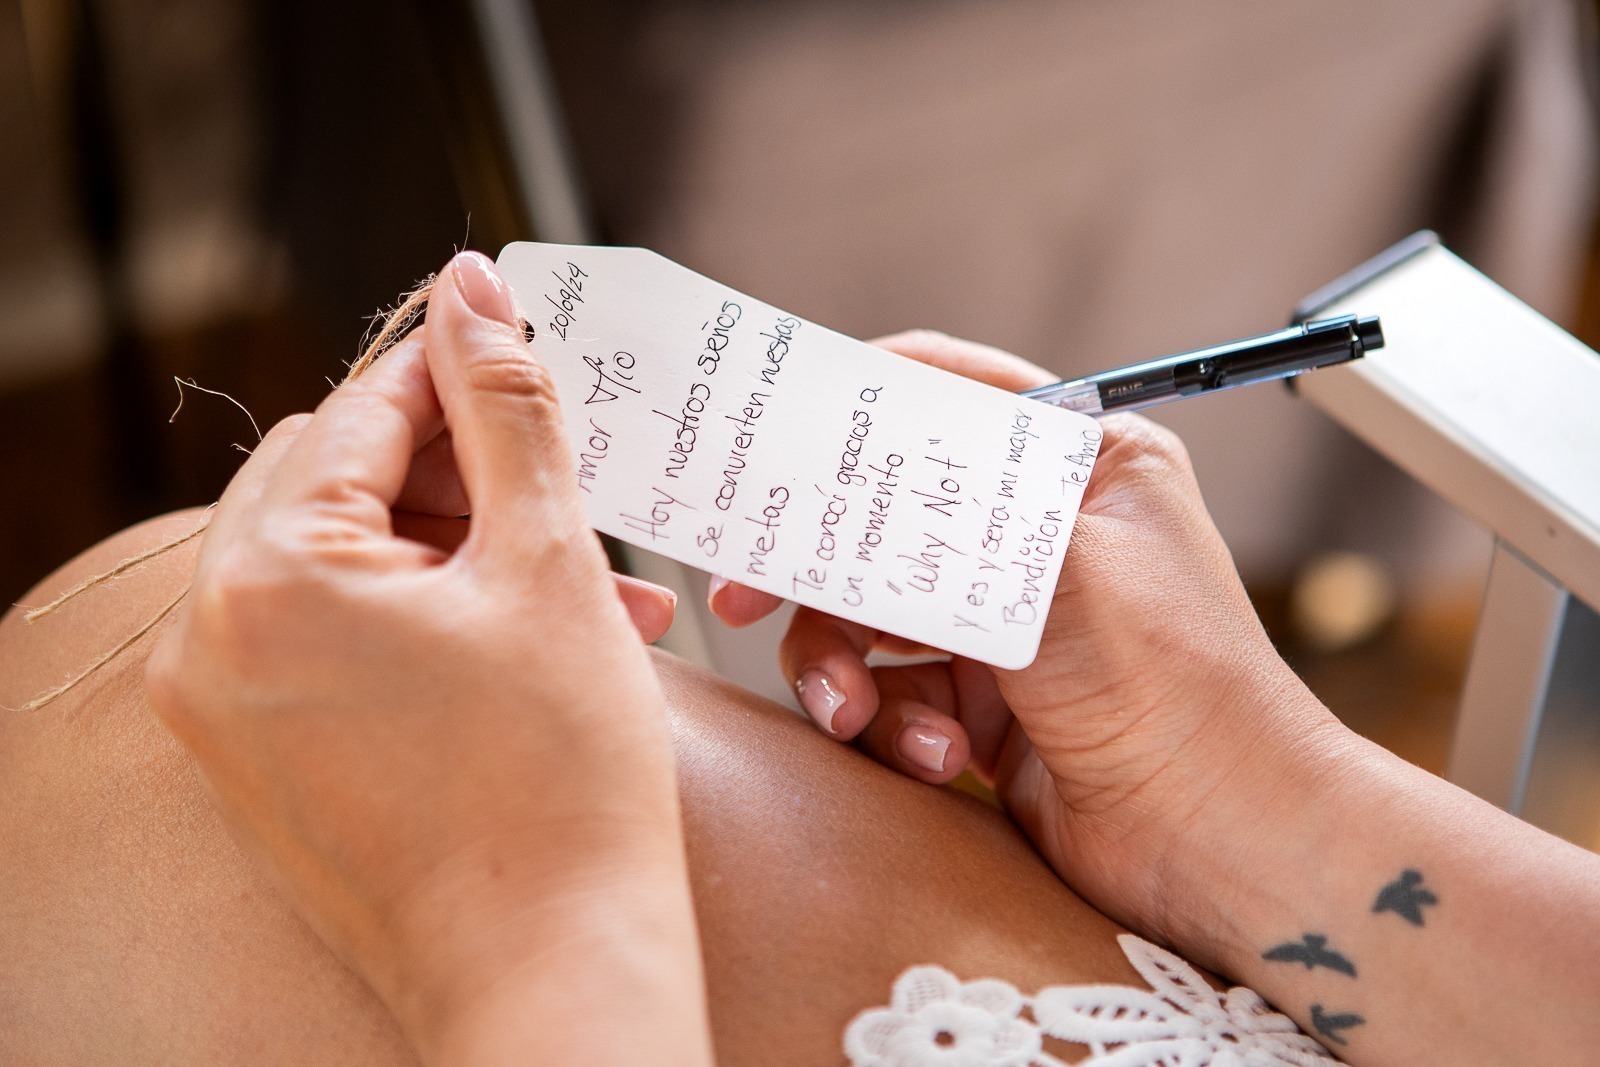 20/09/24
Amor Mío
Hoy nuestros sueños
se convierten nuestras
metas.
Te conocí gracias a
un momento
"Why Not"
y es y será mi mayor
Bendición Te Amo
FINE